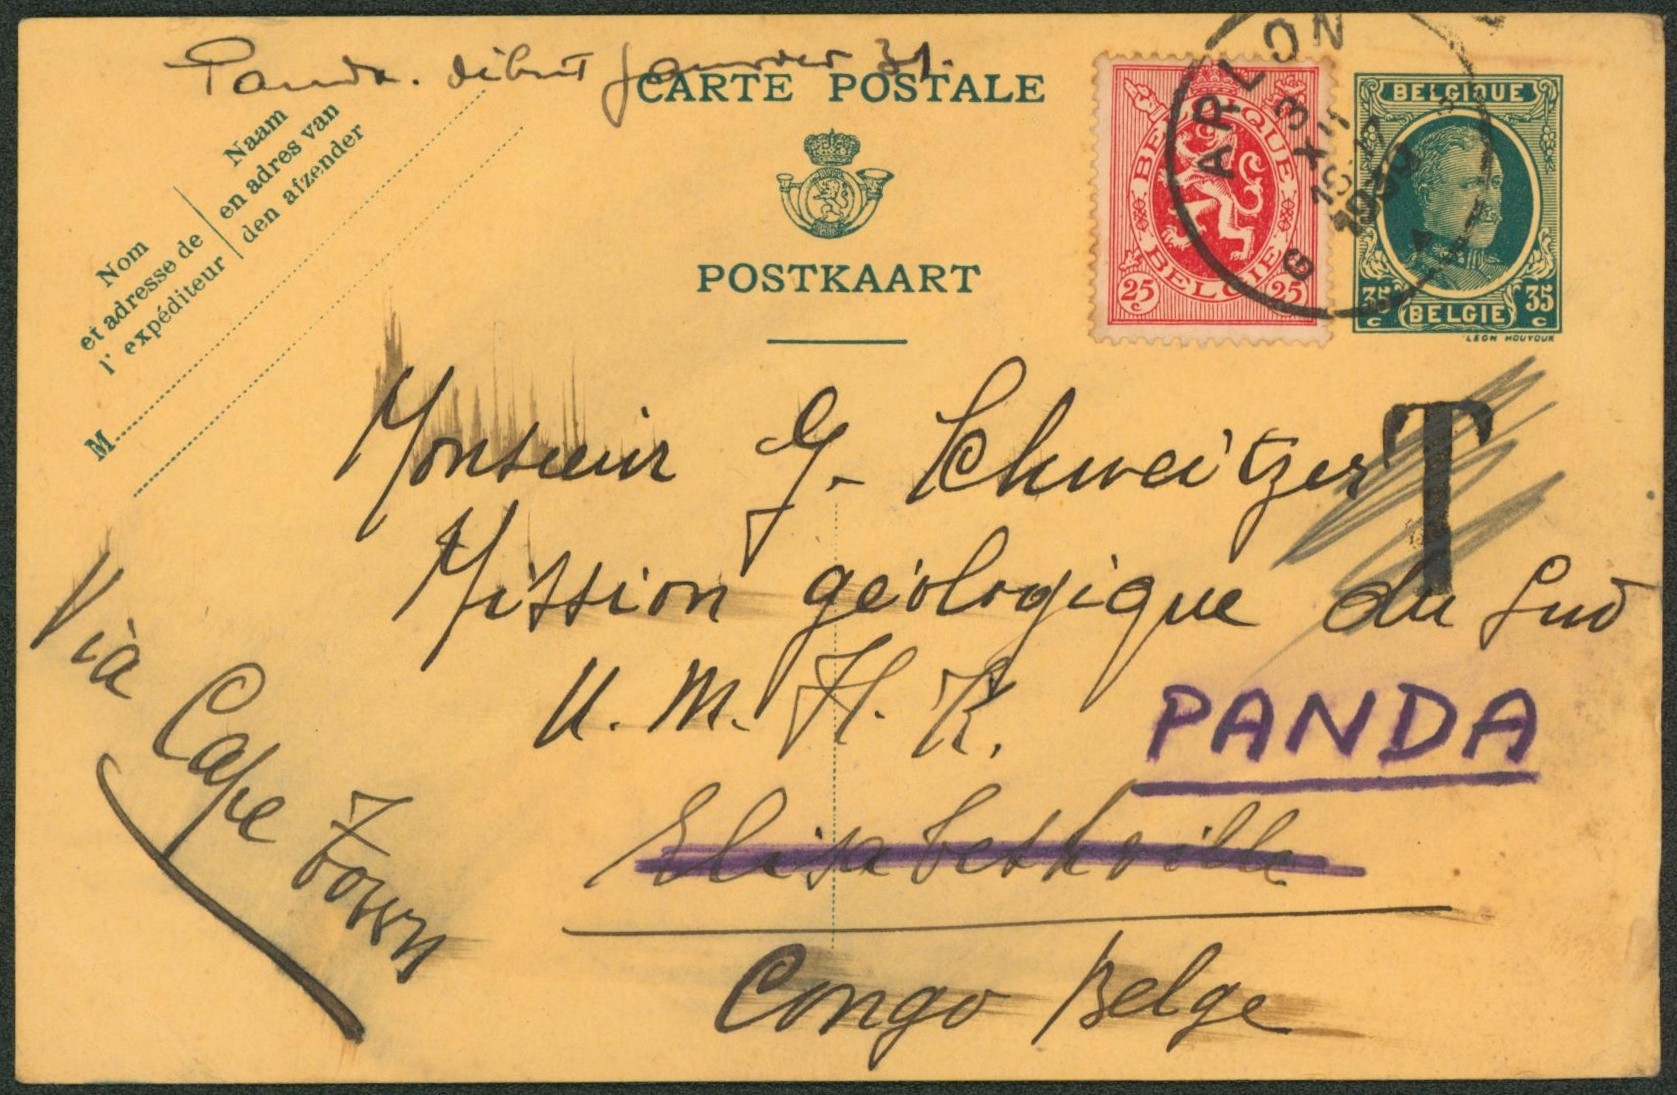 Panda. début Janvier 31.
CARTE POSTALE
POSTKAART
Nom
et adresse de
l'expéditeur
Naam
en adres van
den afzender
M
BELGIQUE
BELGIE
25 c 25 c
ARLON
3 XII
1930
BELGIQUE
35 c BELGIE 35 c
LÉON HOUYOUX
T
Monsieur G. Schweitzer
Mission géologique du Sud
U. M. H. K.
PANDA
Elisabethville
Congo Belge
Via
Cape Town